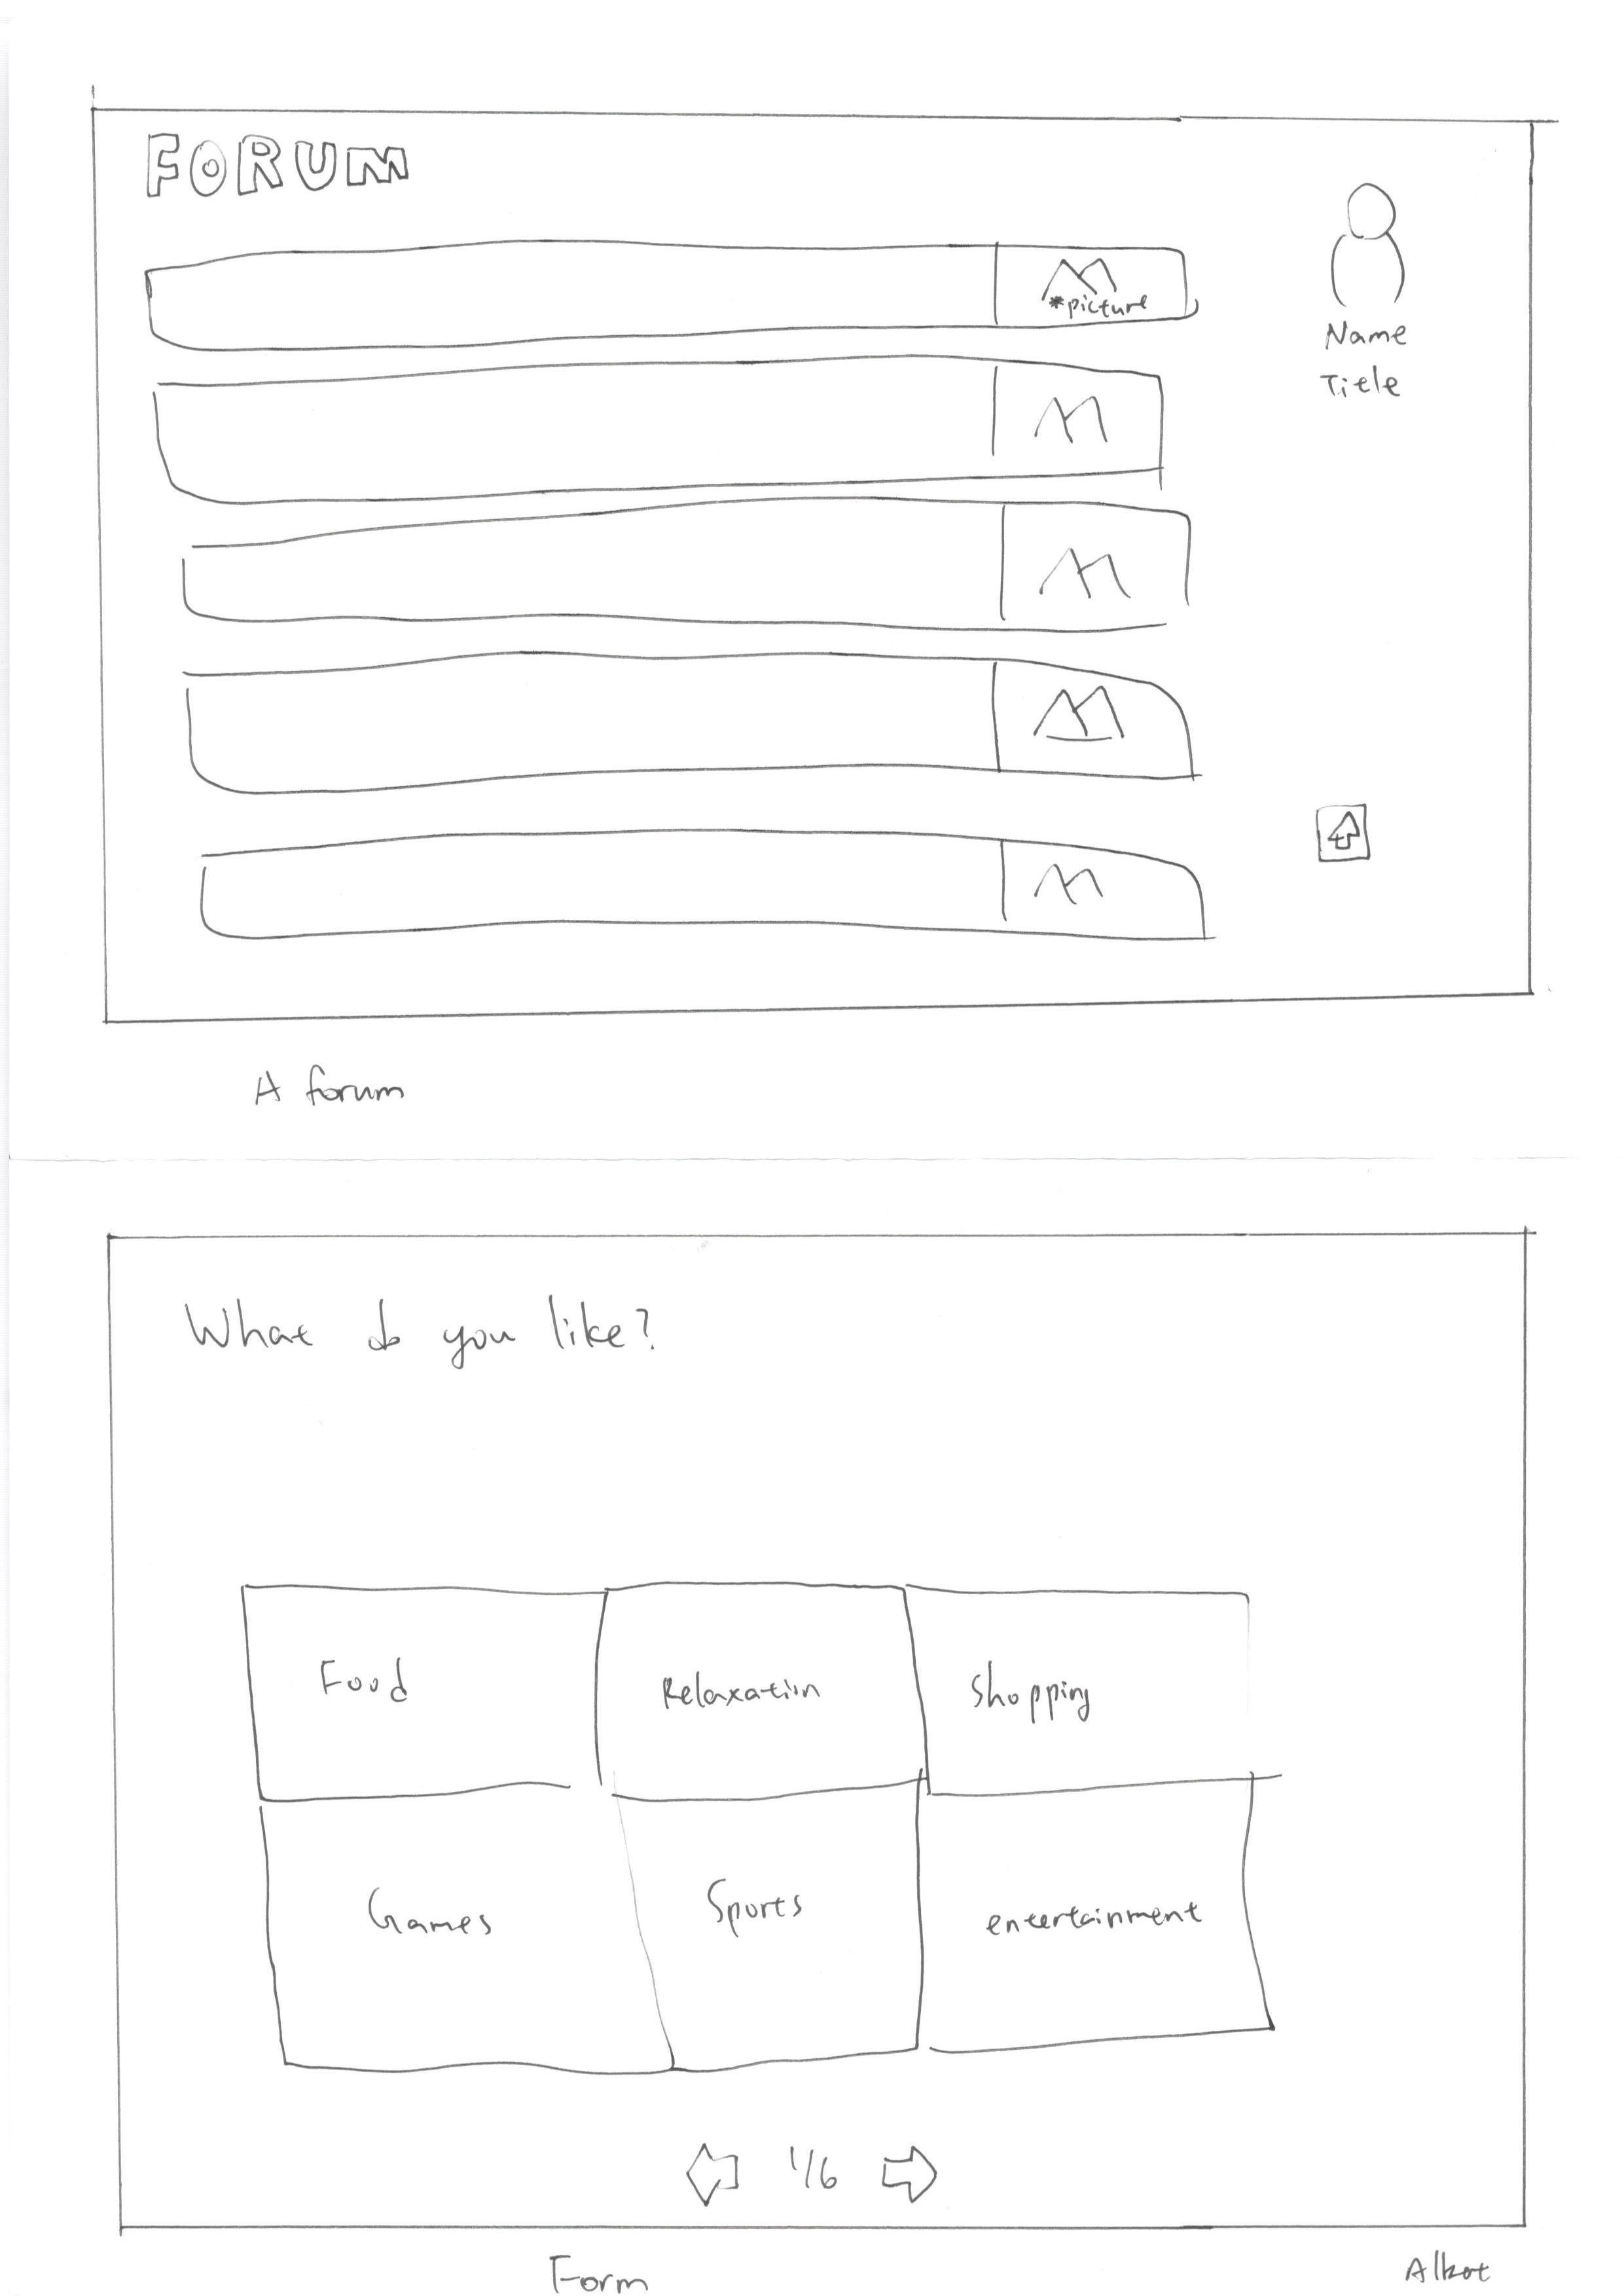 FORUM
*picture
Name
Title
A forum
What do you like?
Food Relaxation Shopping
Games Sports entertainment
1/6
Form